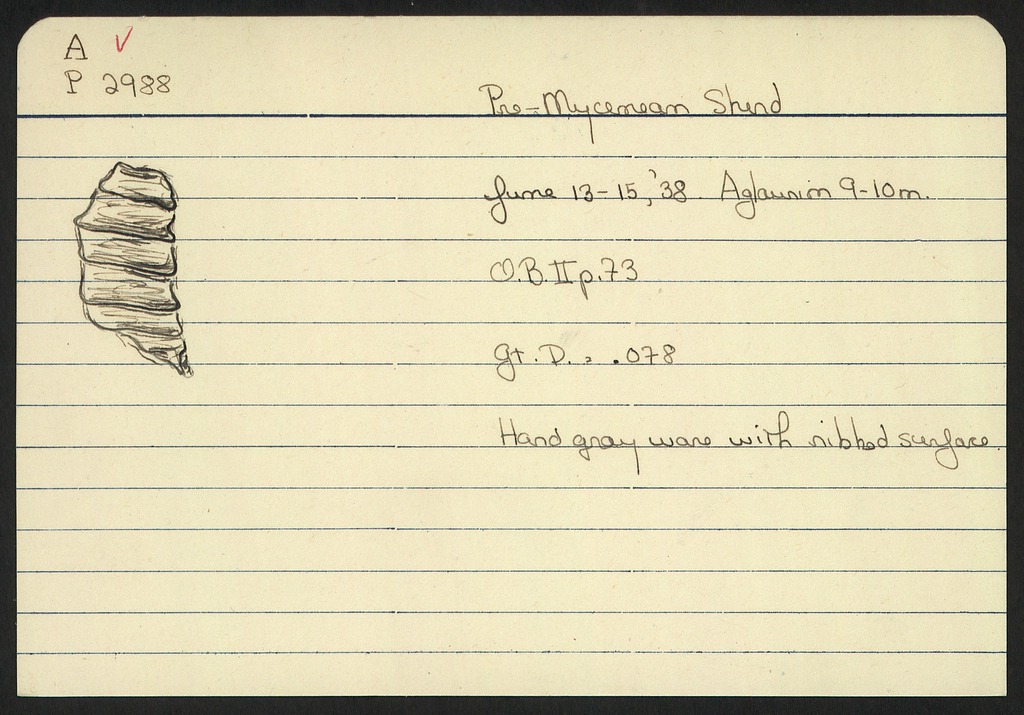 A ✓
P 2988
Pre-Mycenean Sherd
June 13-15, '38. Aglaurion 9-10m.
O.B. II p.73
Gt. D. = .078
Hard gray ware with ribbed surface